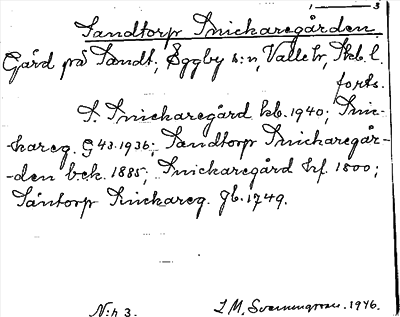 1 — 3
Sandtorp Snickaregården
Gård på Sandt., Eggby s:n, Valle hr, Skb. l.
forts.
S. Snickaregård hb. 1940; Snic-
kareg. G 43. 1936; Sandtorp Snickaregår-
-den b.ek. 1885; Snickaregård hf. 1800;
Säntorp Snickareg. Jb. 1749.
N:r 3. I. M. Svenungsson. 1946.